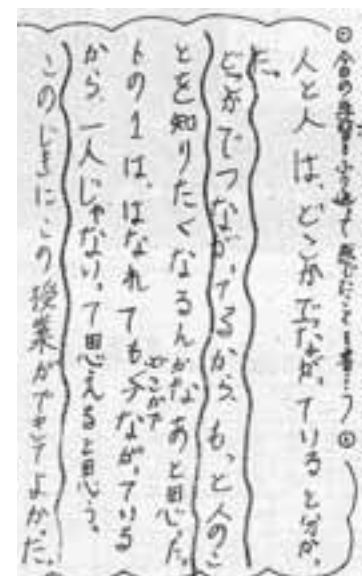 ◎今日の学習をふり返って感じたことを書こう◎
人と人は、どこかでつながっていると分かっ
た。
どこかでつながってるから、もっと人のこ
とを知りたくなるんかなあと思った。
トの1は、はなれても手どこかでつながっている
から、一人じゃない。って思えると思う。
このじきにこの授業ができてよかった。